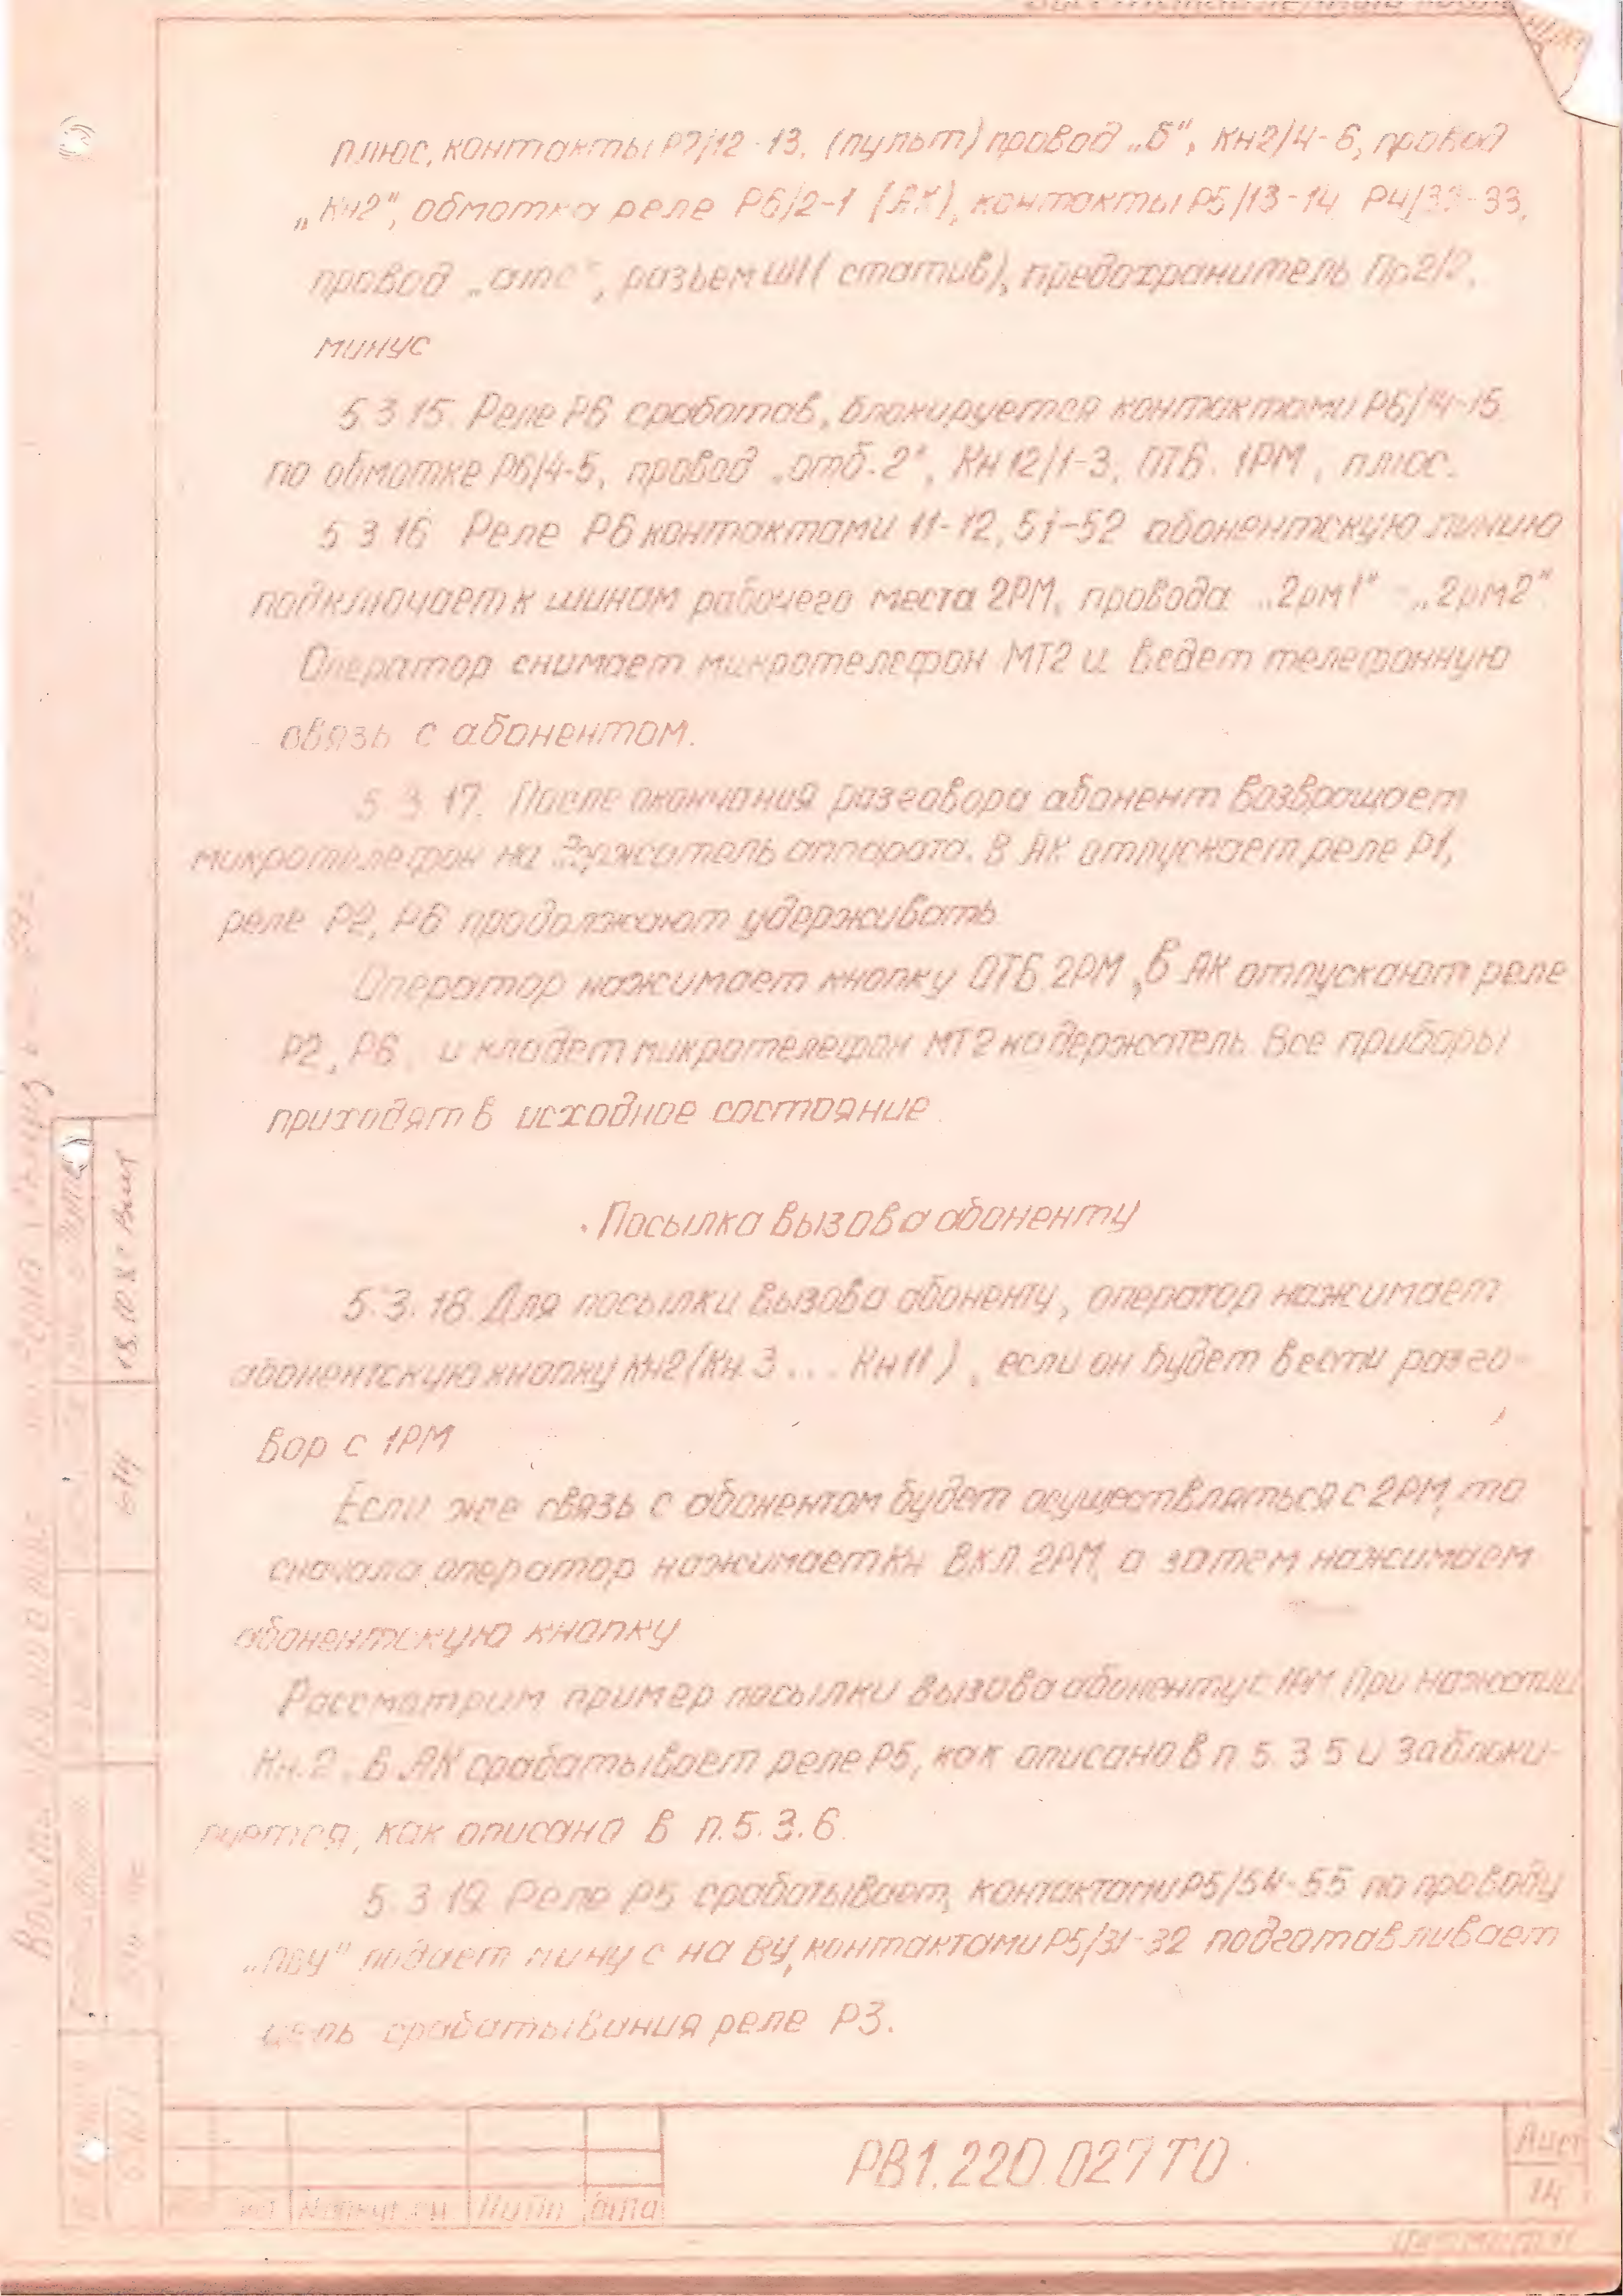 плюс, контакты Р7/12-13, (пульт) провод „б", Кн2/4-6, провод
„Кн2", обмотка реле Р6/2-1 (АК), контакты Р5/13-14 Р4/32-33,
провод „отс", разъем Ш1 (статив), предохранитель Пр2/2,
минус
5.3.15. Реле Р6 сработав, блокируется контактами Р6/14-15
по обмотке Р6/4-5, провод „отб.2", Кн12/1-3, ОТБ. 1РМ, плюс.
5.3.16 Реле Р6 контактами 11-12, 51-52 абонентскую линию
подключает к шинам рабочего места 2РМ, провода „2рм1" - „2рм2"
Оператор снимает микротелефон МТ2 и ведет телефонную
связь с абонентом.
5.3.17. После окончания разговора абонент возвращает
микротелефон на держатель аппарата. В АК отпускает реле Р1,
реле Р2, Р6 продолжают удерживать
Оператор нажимает кнопку ОТБ.2РМ, в АК отпускают реле
Р2, Р6, и кладет микротелефон МТ2 на держатель. Все приборы
приходят в исходное состояние.
Посылка вызова абоненту
5.3.18. Для посылки вызова абоненту, оператор нажимает
абонентскую кнопку Кн2 (Кн.3 ... Кн11), если он будет вести разго-
вор с 1РМ
Если же связь с абонентом будет осуществляться с 2РМ, то
сначала оператор нажимает Кн ВКЛ. 2РМ, а затем нажимаем
абонентскую кнопку
Рассмотрим пример посылки вызова абоненту с 1РМ При нажатии
Кн.2, в АК срабатывает реле Р5, как описано в п. 5.3.5 и заблоки-
руется, как описано в п.5.3.6.
5.3.19 Реле Р5 срабатывает, контактами Р5/54-55 по проводу
„пву" подает минус на ВУ, контактами Р5/31-32 подготавливает
цепь срабатывания реле Р3.
РВ1.220.027 ТО
Лист
14